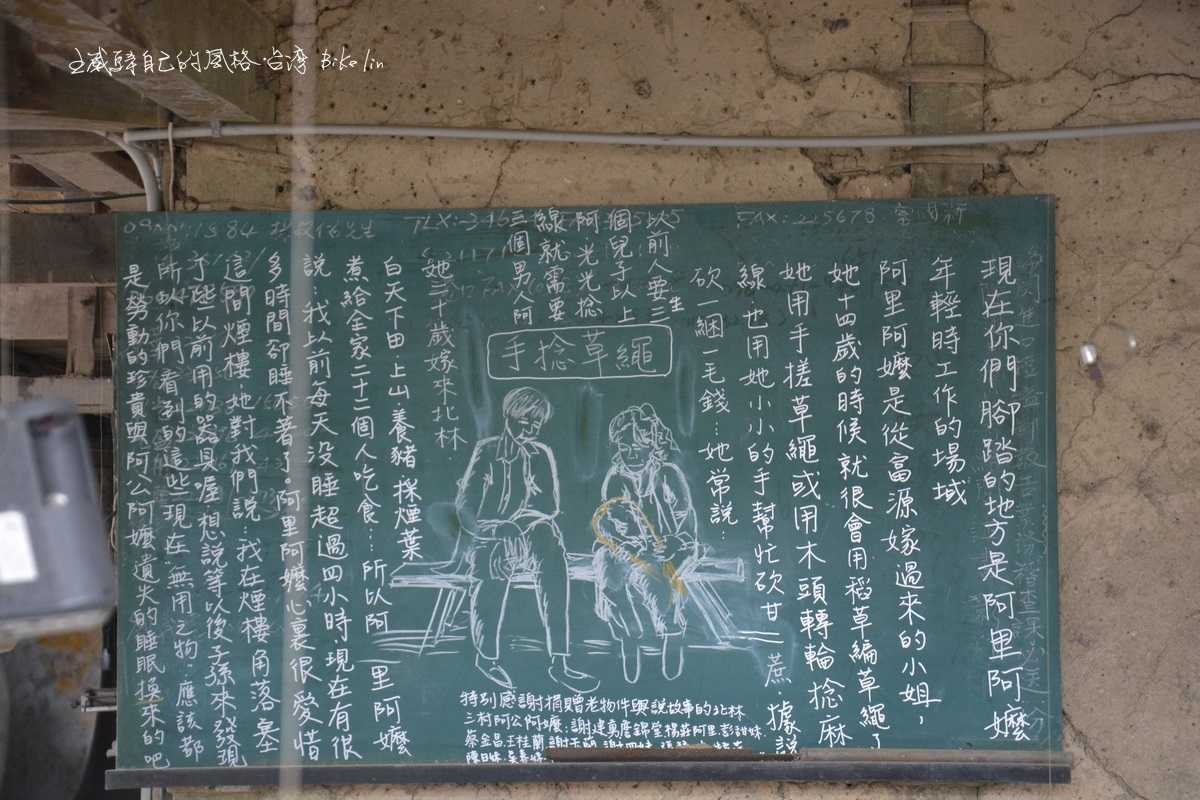 台灣 Biko lin
現在你們腳踏的地方是阿里阿嬤
年輕時工作的場域
阿里阿嬤是從富源嫁過來的小姐，
她十四歲的時候就很會用稻草編草繩了
她用手搓草繩或用木頭轉輪捻麻
線也用她小小的手幫忙砍甘蔗．據說
砍一綑一毛錢…她常說…
以前人要生三
個兒子以上
阿光光捻
線就需要
三個男人阿
手捻草繩
她二十歲嫁來北林．
白天下田．上山養豬採煙葉
煮給全家二十二個人吃食…所以阿里阿嬤
說 我以前每天沒睡超過四小時．現在有很
多時間卻睡不著了。阿里阿嬤心裏很愛惜
這間煙樓．她對我們說．我在煙樓角落塞
了些以前用的器具喔想說等以後子孫來發現
所以你們看到的這些現在無用之物．應該都
是勞動的珍貴與阿公阿嬤遺失的睡眠換來的吧
特別感謝捐贈老物件與說故事的北林
三村阿公阿嬤：謝建真 詹錦堂 楊莊阿里 彭甜妹
蔡金昌 王桂蘭
FAX: 215678